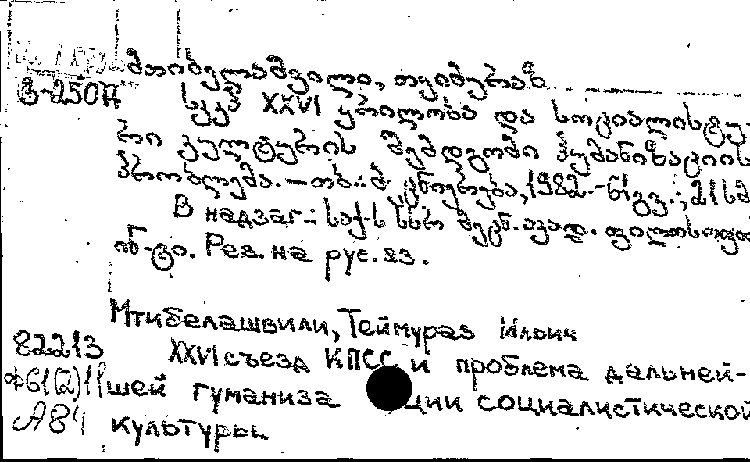 მთიბელაშვილი, თეიმურაზ
სკკპ XXVI ყრილობა და სოციალისტუ-
რი კულტურის შემდგომი ჰუმანიზაციის
პრობლემა. — თბ.: მეცნიერება, 1982. - 61 გვ.; 21 სმ
В надзаг.: საქ. სსრ მეცნ. აკად. ფილოსოფ
ინ-ტი. Рез. на рус. яз.
Мтибелашвили, Теймураз Ильич
82.213 XXVI съезд КПСС и проблема дальней-
Ф61(2)11 шей гуманиза ции социалистической
А84 культуры